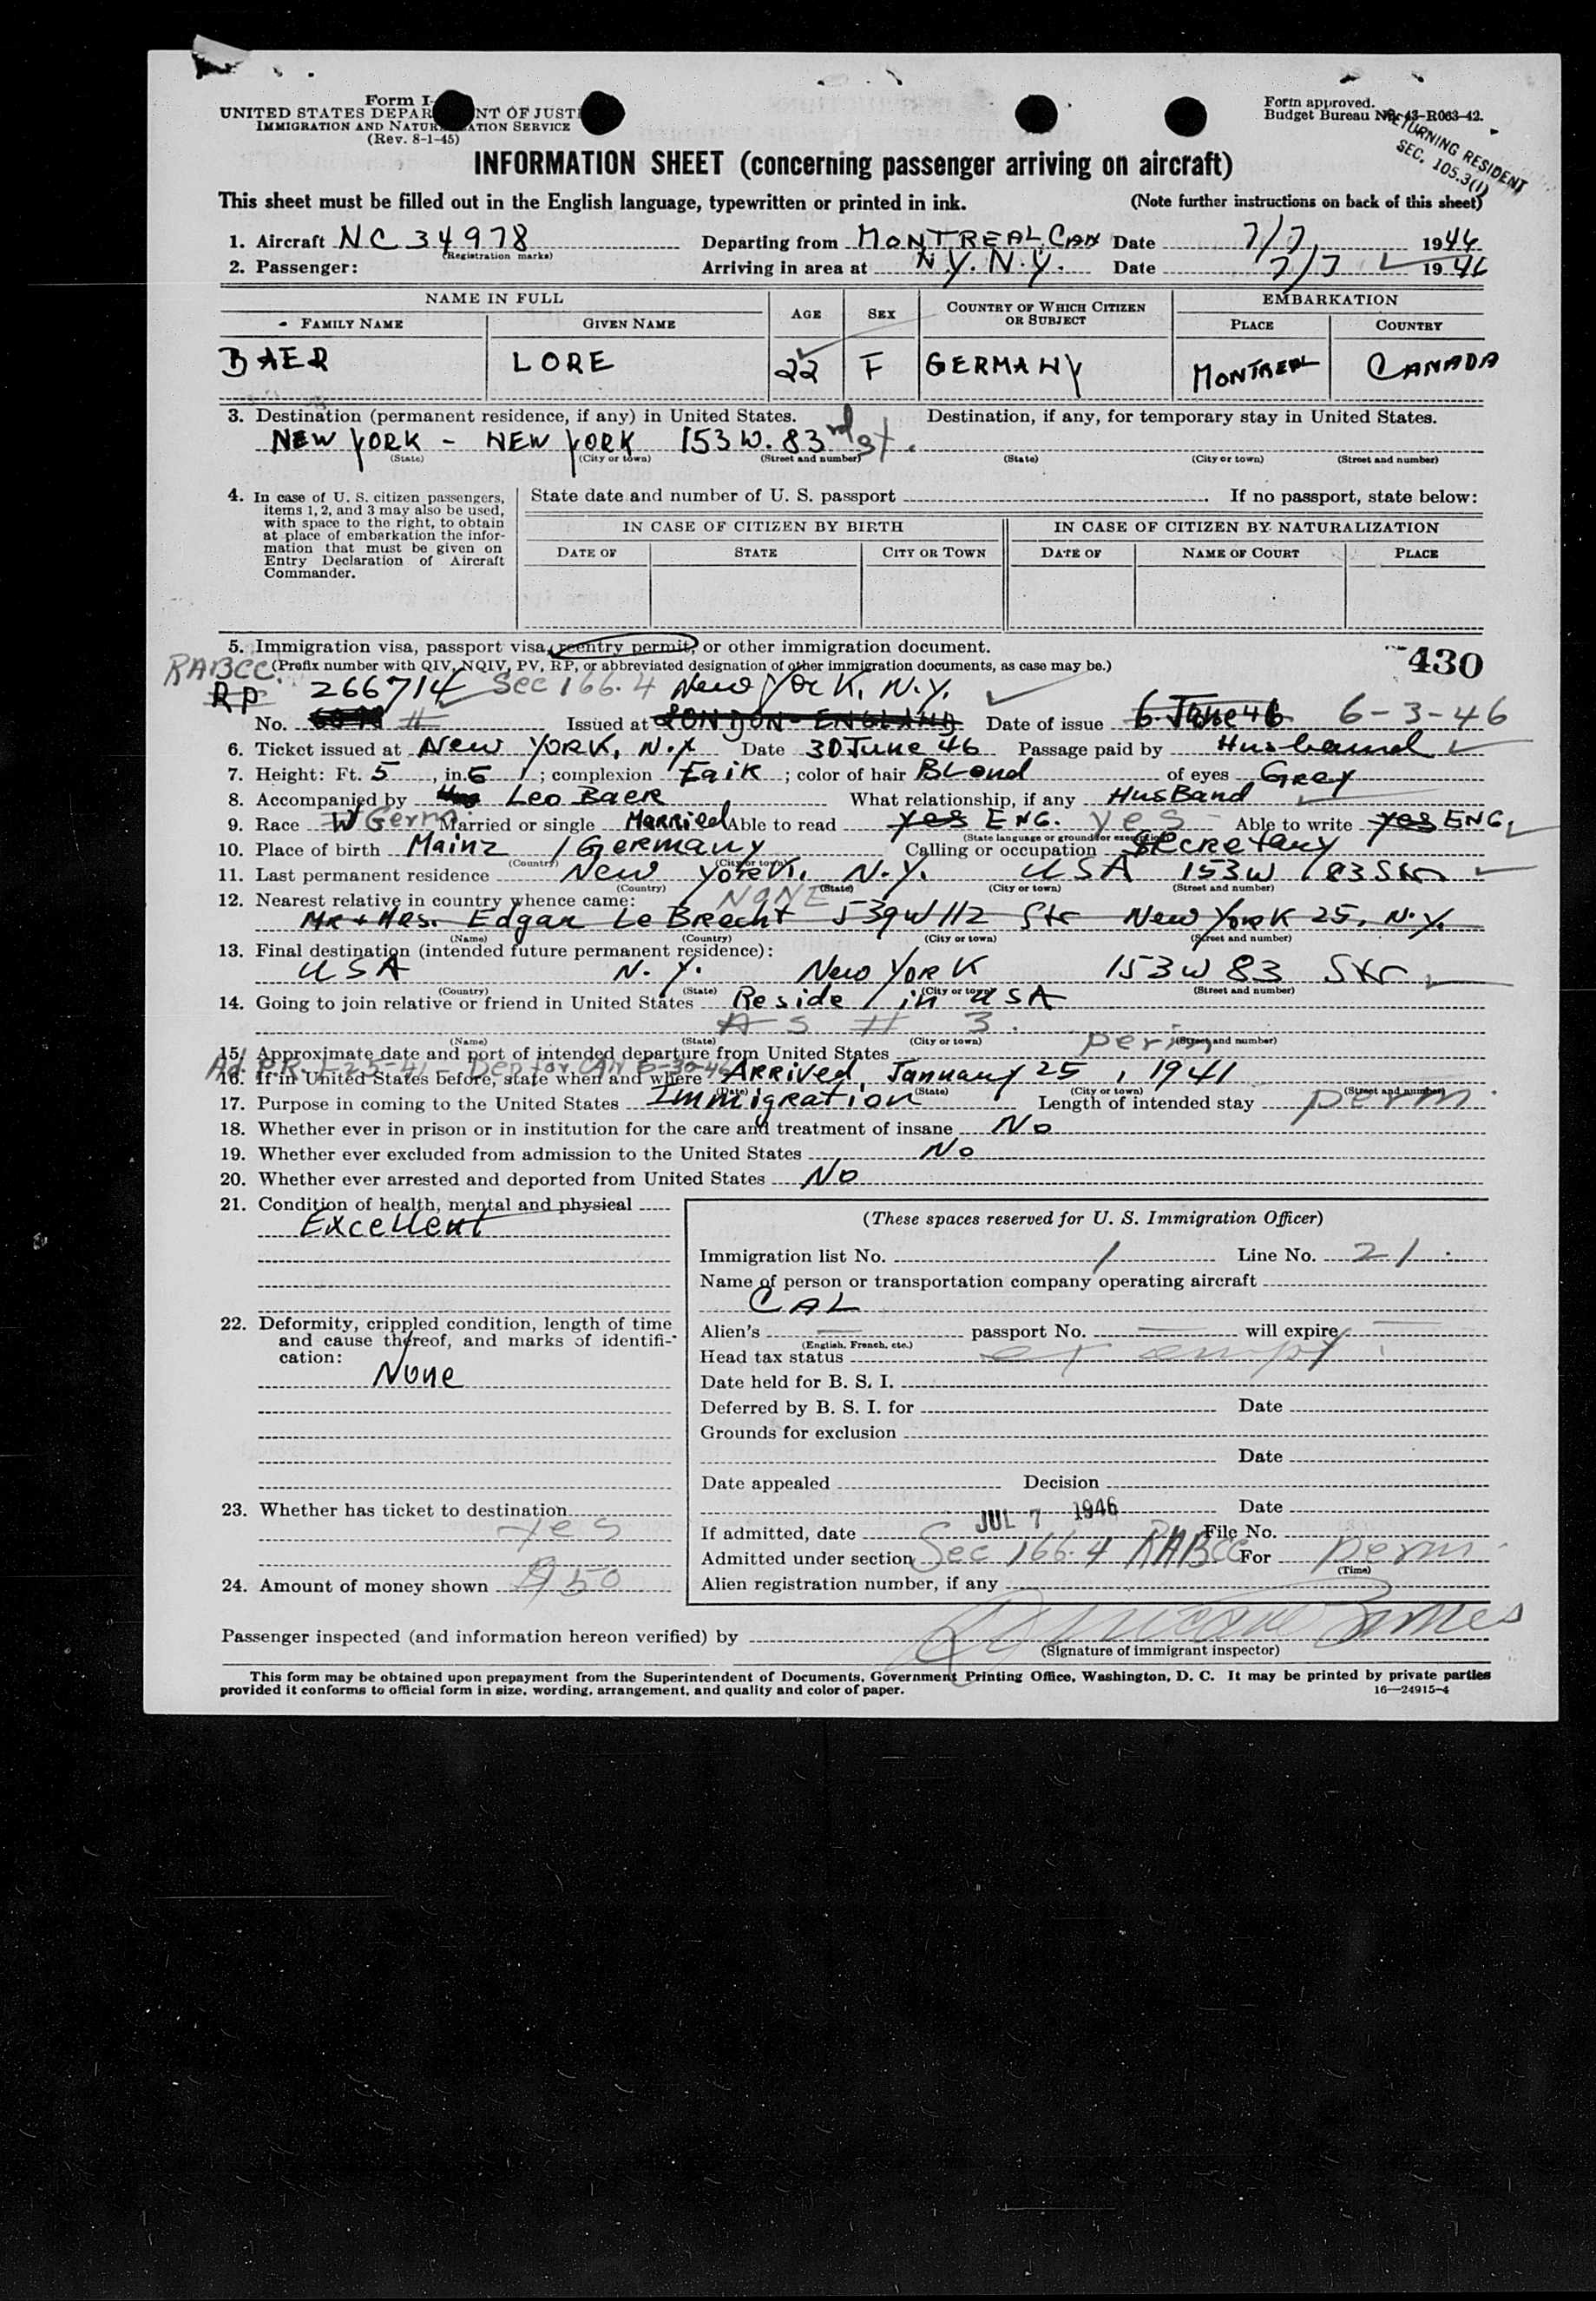 Form I-
UNITED STATES DEPAR NT OF JUSTI
IMMIGRATION AND NATUR ATION SERVICE
(Rev. 8-1-45)
Form approved.
Budget Bureau No. 43-R063-42.
RETURNING RESIDENT
SEC. 105.3(1)
INFORMATION SHEET (concerning passenger arriving on aircraft)
This sheet must be filled out in the English language, typewritten or printed in ink. (Note further instructions on back of this sheet)
1. Aircraft NC 34978 Departing from MONTREAL CAN Date 7/7, 1946
(Registration marks)
2. Passenger: Arriving in area at N.Y. N.Y. Date 7/7 1946
NAME IN FULL AGE SEX COUNTRY OF WHICH CITIZEN OR SUBJECT EMBARKATION
FAMILY NAME GIVEN NAME PLACE COUNTRY
BAER LORE 22 F GERMANY MONTREAL CANADA
3. Destination (permanent residence, if any) in United States. Destination, if any, for temporary stay in United States.
NEW YORK - NEW YORK 153 W. 83rd st.
(State) (City or town) (Street and number) (State) (City or town) (Street and number)
4. In case of U. S. citizen passengers, items 1, 2, and 3 may also be used, with space to the right, to obtain at place of embarkation the information that must be given on Entry Declaration of Aircraft Commander.
State date and number of U. S. passport . If no passport, state below:
IN CASE OF CITIZEN BY BIRTH IN CASE OF CITIZEN BY NATURALIZATION
DATE OF STATE CITY OR TOWN DATE OF NAME OF COURT PLACE
5. Immigration visa, passport visa, reentry permit, or other immigration document.
(Prefix number with QIV, NQIV, PV, RP, or abbreviated designation of other immigration documents, as case may be.)
430
RABCC.
RP 266714 Sec 166.4 New York, N.Y.
No. Issued at LONDON-ENGLAND Date of issue 6 June 46 6-3-46
6. Ticket issued at New YORK, N.Y Date 30 June 46 Passage paid by Husband
7. Height: Ft. 5, in. 6; complexion Fair; color of hair Blond of eyes Grey
8. Accompanied by Leo Baer What relationship, if any HusBand
9. Race W Germ. Married or single Married Able to read yes ENG. yes Able to write yes ENG.
(State language or ground for exemption)
10. Place of birth Mainz / Germany Calling or occupation Secretary
(Country) (City or town)
11. Last permanent residence New York, N.Y. USA 153 W 83 Str
(Country) (State) (City or town) (Street and number)
12. Nearest relative in country whence came: NONE
Mr + Mrs. Edgar LeBrecht 539 W 112 Str New York 25, N.Y.
(Name) (Country) (City or town) (Street and number)
13. Final destination (intended future permanent residence):
USA N.Y. New York 153 W 83 Str
(Country) (State) (City or town) (Street and number)
14. Going to join relative or friend in United States Reside in USA
As # 3.
(Name) (State) (City or town) (Street and number)
15. Approximate date and port of intended departure from United States perm
Ad. P.R. 1-25-41 - Dep for CAN 6-30-46
16. If in United States before, state when and where ARRived, January 25, 1941
(Date) (State) (City or town) (Street and number)
17. Purpose in coming to the United States Immigration Length of intended stay perm.
18. Whether ever in prison or in institution for the care and treatment of insane No
19. Whether ever excluded from admission to the United States No
20. Whether ever arrested and deported from United States No
21. Condition of health, mental and physical
Excellent
22. Deformity, crippled condition, length of time and cause thereof, and marks of identification:
None
23. Whether has ticket to destination
yes
24. Amount of money shown $50
(These spaces reserved for U. S. Immigration Officer)
Immigration list No. 1 Line No. 21
Name of person or transportation company operating aircraft
CAL
Alien's — passport No. — will expire —
(English, French, etc.)
Head tax status exempt
Date held for B. S. I.
Deferred by B. S. I. for Date
Grounds for exclusion
Date
Date appealed Decision
Date
JUL 7 1946
If admitted, date File No.
Admitted under section Sec 166.4 RABCC For perm.
(Time)
Alien registration number, if any
Passenger inspected (and information hereon verified) by
(Signature of immigrant inspector)
This form may be obtained upon prepayment from the Superintendent of Documents, Government Printing Office, Washington, D. C. It may be printed by private parties
provided it conforms to official form in size, wording, arrangement, and quality and color of paper. 16—24915-4